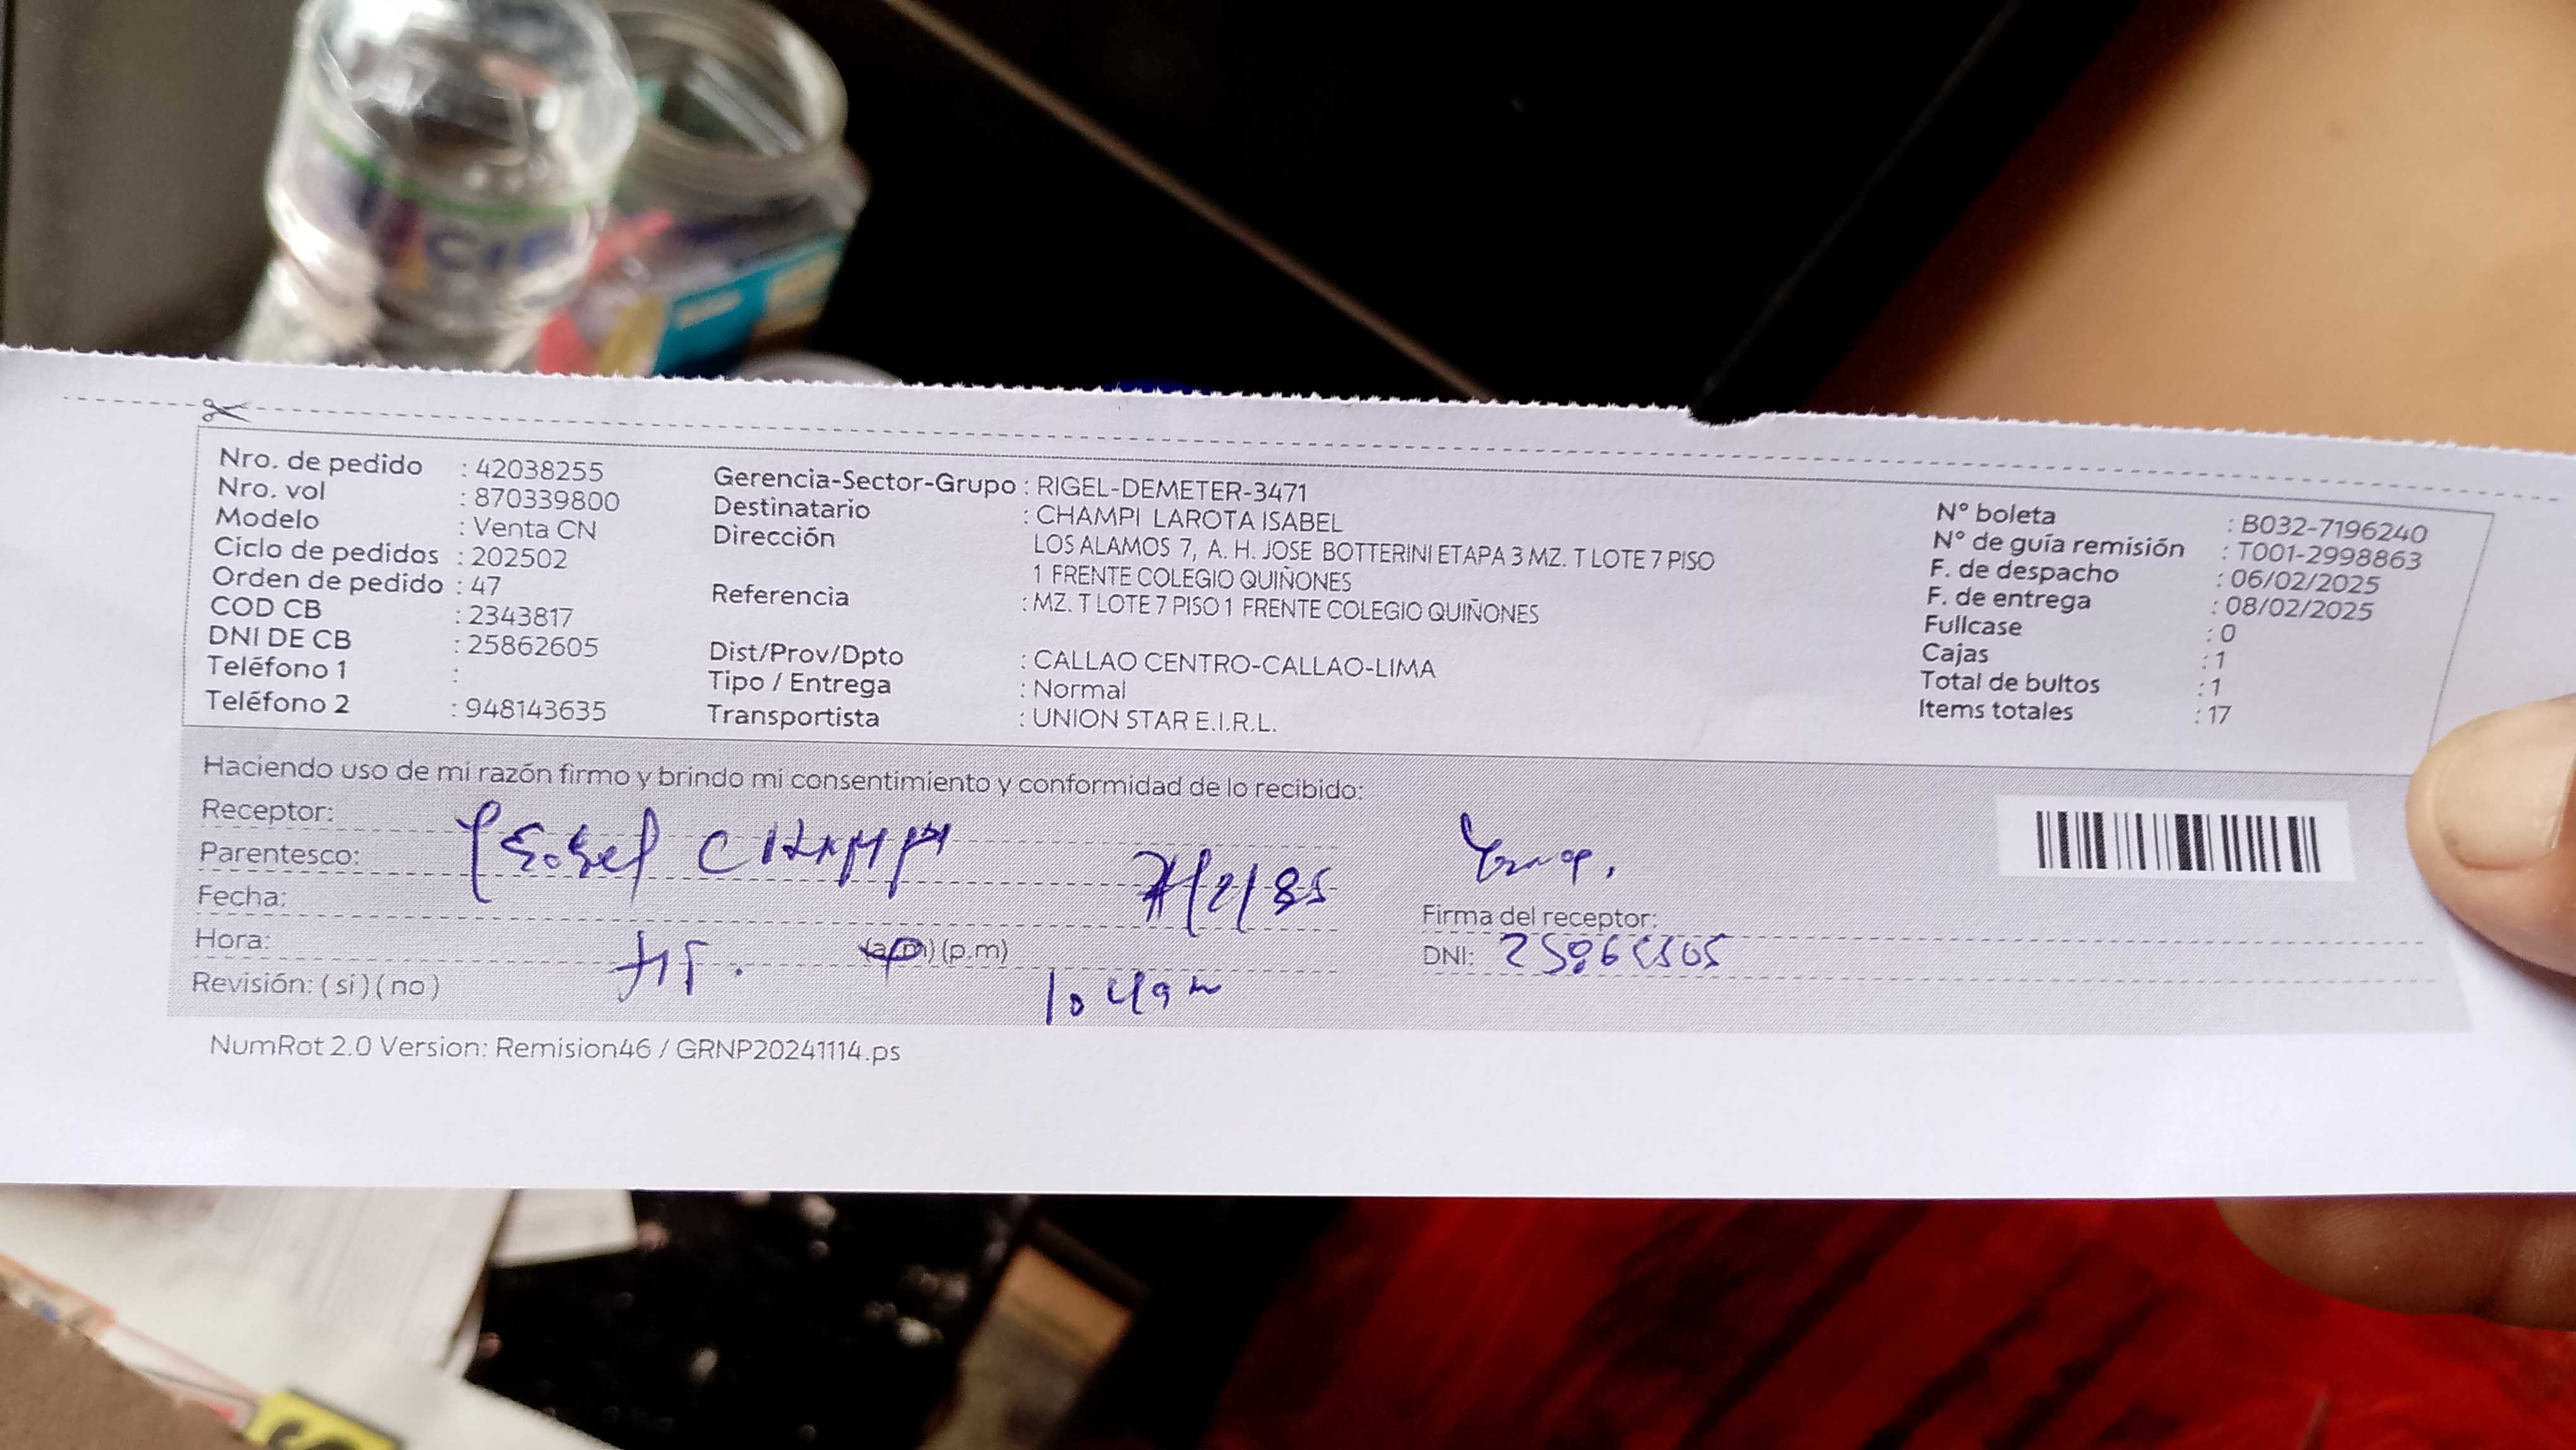 Nro. de pedido : 42038255
Nro. vol : 870339800
Modelo : Venta CN
Ciclo de pedidos : 202502
Orden de pedido : 47
COD CB : 2343817
DNI DE CB : 25862605
Teléfono 1 :
Teléfono 2 : 948143635
Gerencia-Sector-Grupo : RIGEL-DEMETER-3471
Destinatario : CHAMPI LAROTA ISABEL
Dirección LOS ALAMOS 7, A. H. JOSE BOTTERINI ETAPA 3 MZ. T LOTE 7 PISO
1 FRENTE COLEGIO QUIÑONES
Referencia : MZ. T LOTE 7 PISO 1 FRENTE COLEGIO QUIÑONES
Dist/Prov/Dpto : CALLAO CENTRO-CALLAO-LIMA
Tipo / Entrega : Normal
Transportista : UNION STAR E.I.R.L.
N° boleta : B032-7196240
N° de guía remisión : T001-2998863
F. de despacho : 06/02/2025
F. de entrega : 08/02/2025
Fullcase : 0
Cajas : 1
Total de bultos : 1
Items totales : 17
Haciendo uso de mi razón firmo y brindo mi consentimiento y conformidad de lo recibido:
Receptor:
Parentesco: CHAMPI
Fecha:
Hora: (a.m) (p.m)
Revisión: ( si ) ( no )
Firma del receptor:
DNI:
NumRot 2.0 Version: Remision46 / GRNP20241114.ps